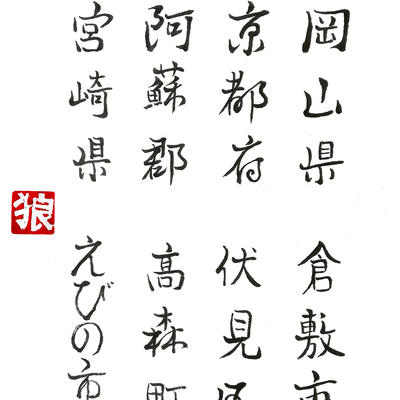 岡山県 倉敷市
京都府 伏見区
阿蘇郡 高森町
宮崎県 えびの市
狼